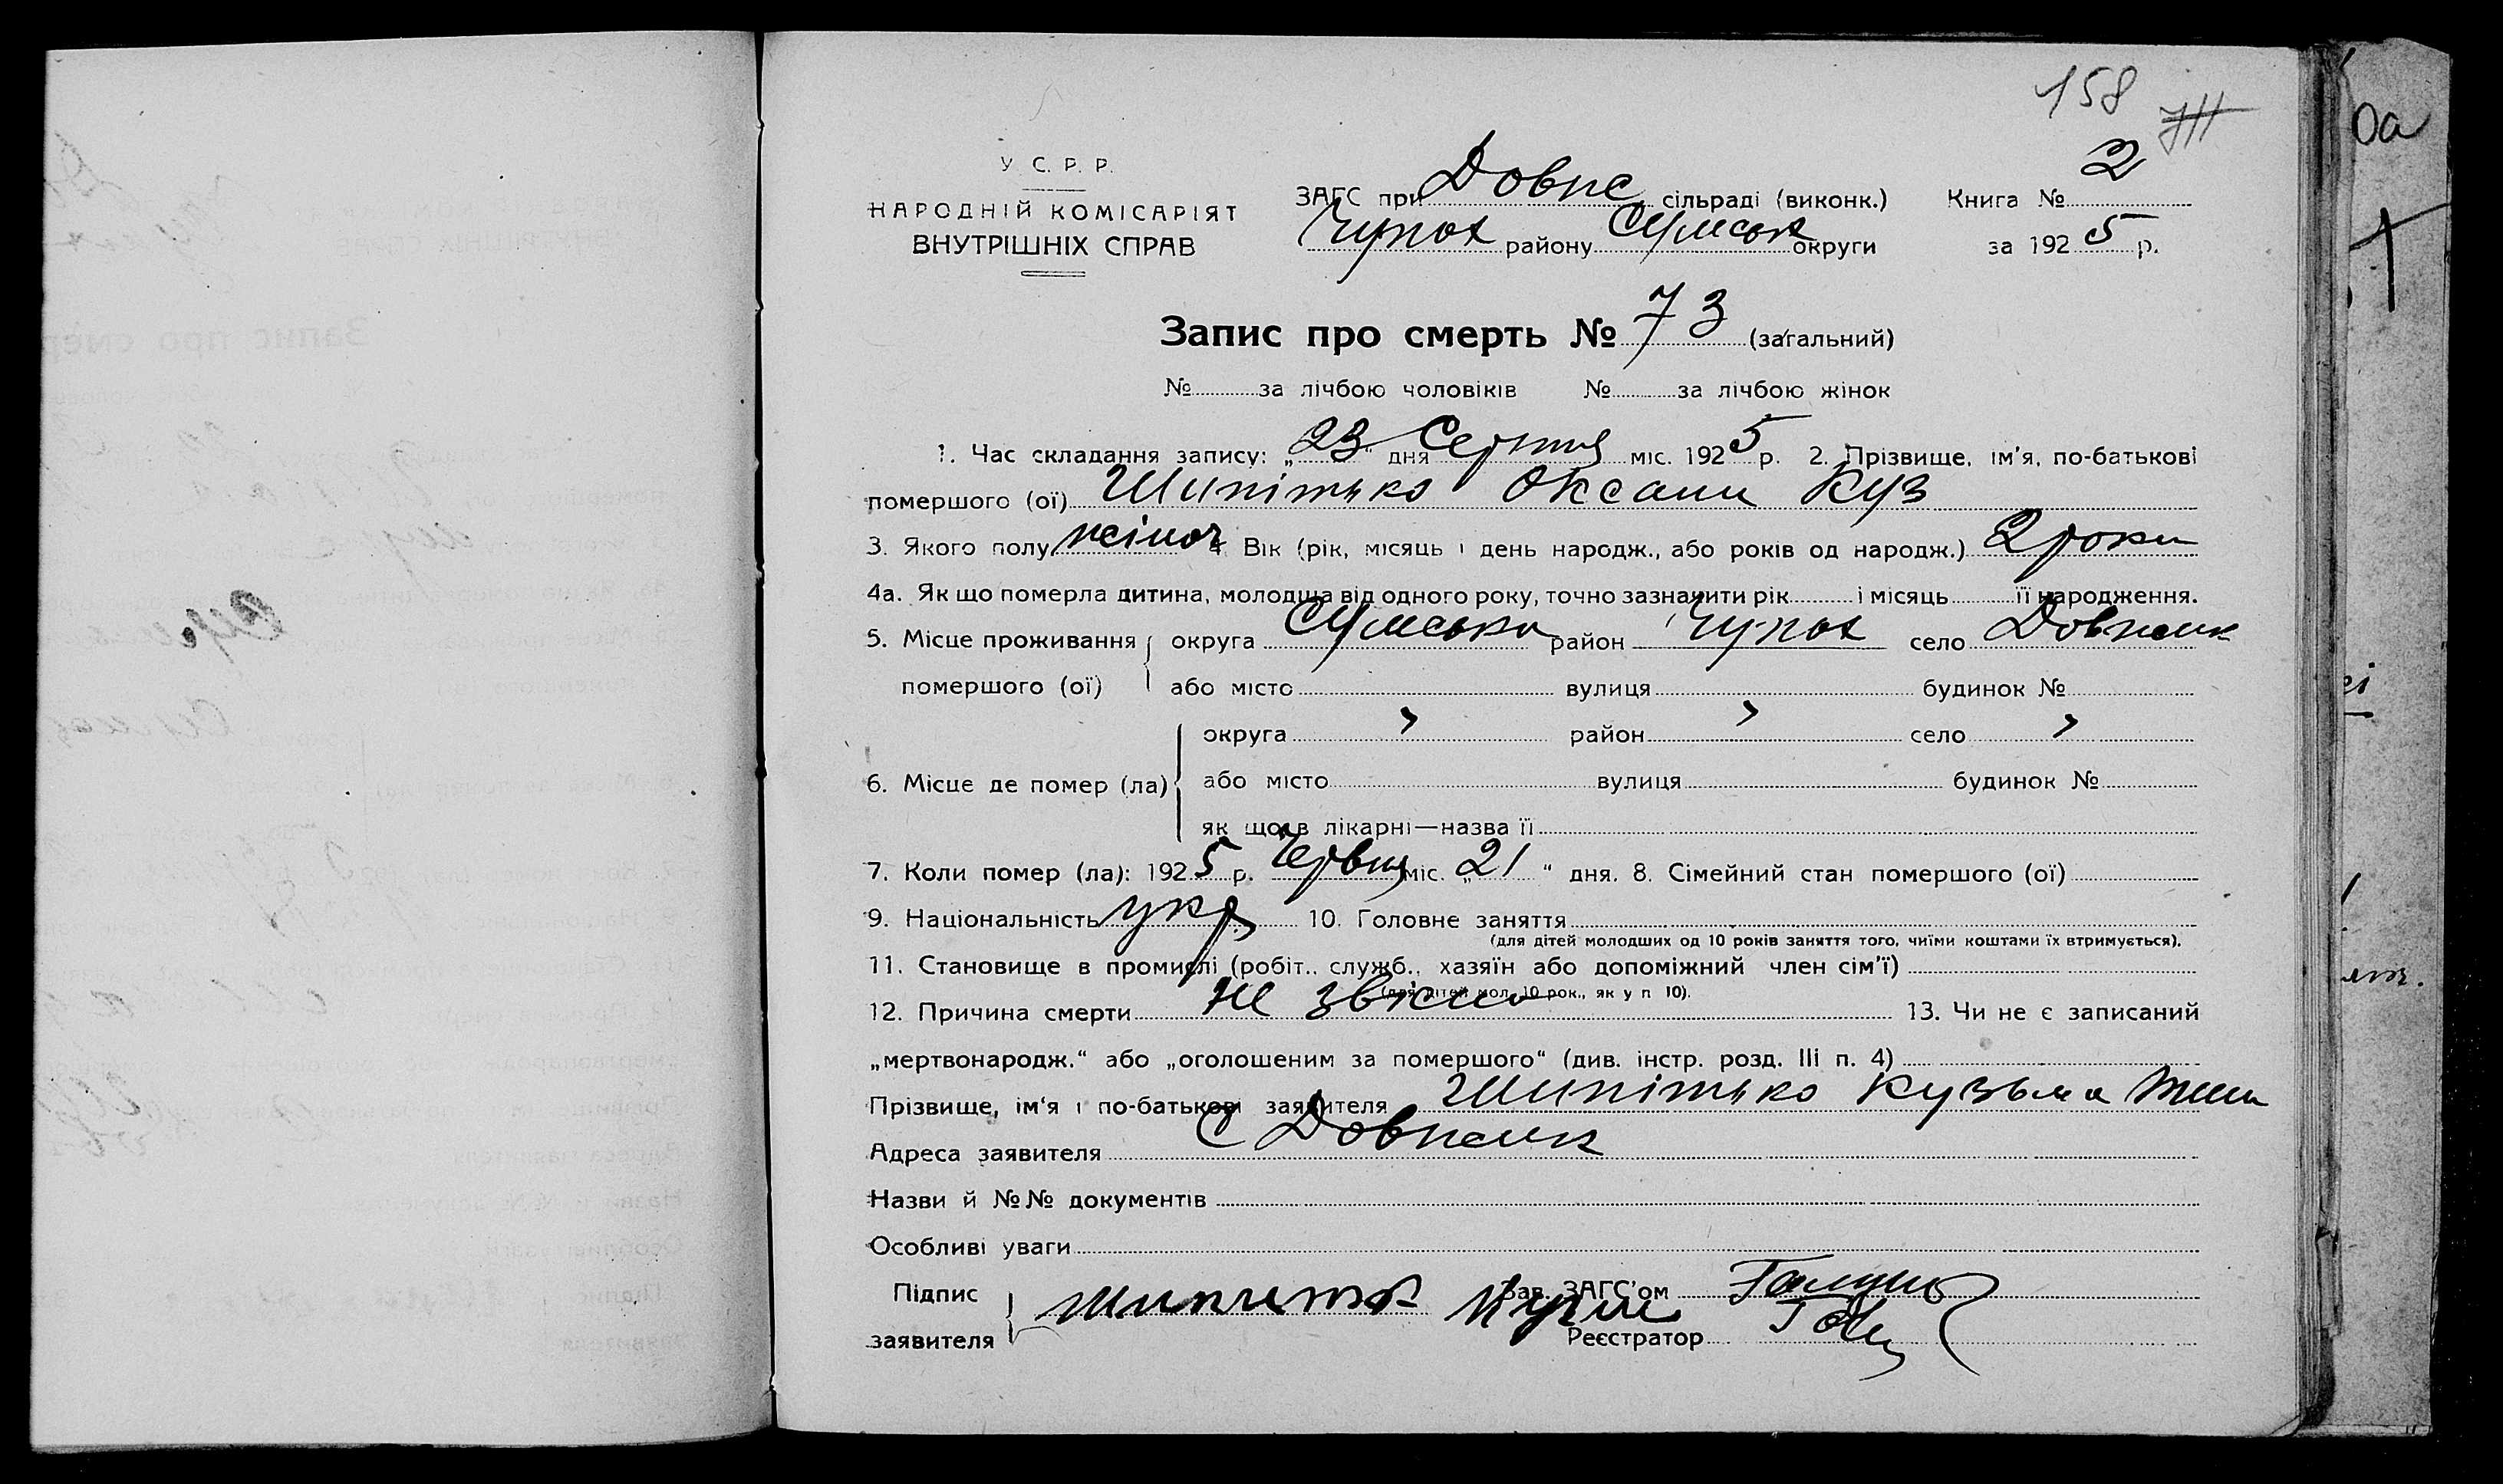 158
У. С. Р. Р.
НАРОДНІЙ КОМІСАРІЯТ
ВНУТРІШНІХ СПРАВ
ЗАГС при Довпе сільраді (виконк.) Книга № 2
Чупах району Сумськ округи за 1925 р.
Запис про смерть № 73 (загальний)
№ за лічбою чоловіків № за лічбою жінок
1. Час складання запису: „23“ дня Серпня міс. 1925 р. 2. Прізвище, ім'я, по-батькові
помершого (ої) Шипітько Оксани Куз
3. Якого полу жіноч 4. Вік (рік, місяць і день народж., або років од народж.) 2 роки
4а. Як що померла дитина, молодша від одного року, точно зазначити рік і місяць її народження.
5. Місце проживання округа Сумська район Чупах село
помершого (ої) або місто вулиця будинок №
округа " район " село "
6. Місце де помер (ла) або місто вулиця будинок №
як що в лікарні—назва її
7. Коли помер (ла): 1925 р. Червня міс. „21“ дня. 8. Сімейний стан помершого (ої)
9. Національність укр 10. Головне заняття
(для дітей молодших од 10 років заняття того, чиїми коштами їх втримується).
11. Становище в промислі (робіт., служб., хазяїн або допоміжний член сім'ї)
(для дітей мол. 10 рок., як у п 10).
12. Причина смерти Не звісно 13. Чи не є записаний
„мертвонародж.“ або „оголошеним за помершого“ (див. інстр. розд. III п. 4)
Прізвище, ім'я і по-батькові заявителя Шипітько Кузьма
Адреса заявителя С
Назви й №№ документів
Особливі уваги
Підпис Зав. ЗАГС'ом
заявителя Реєстратор
0а